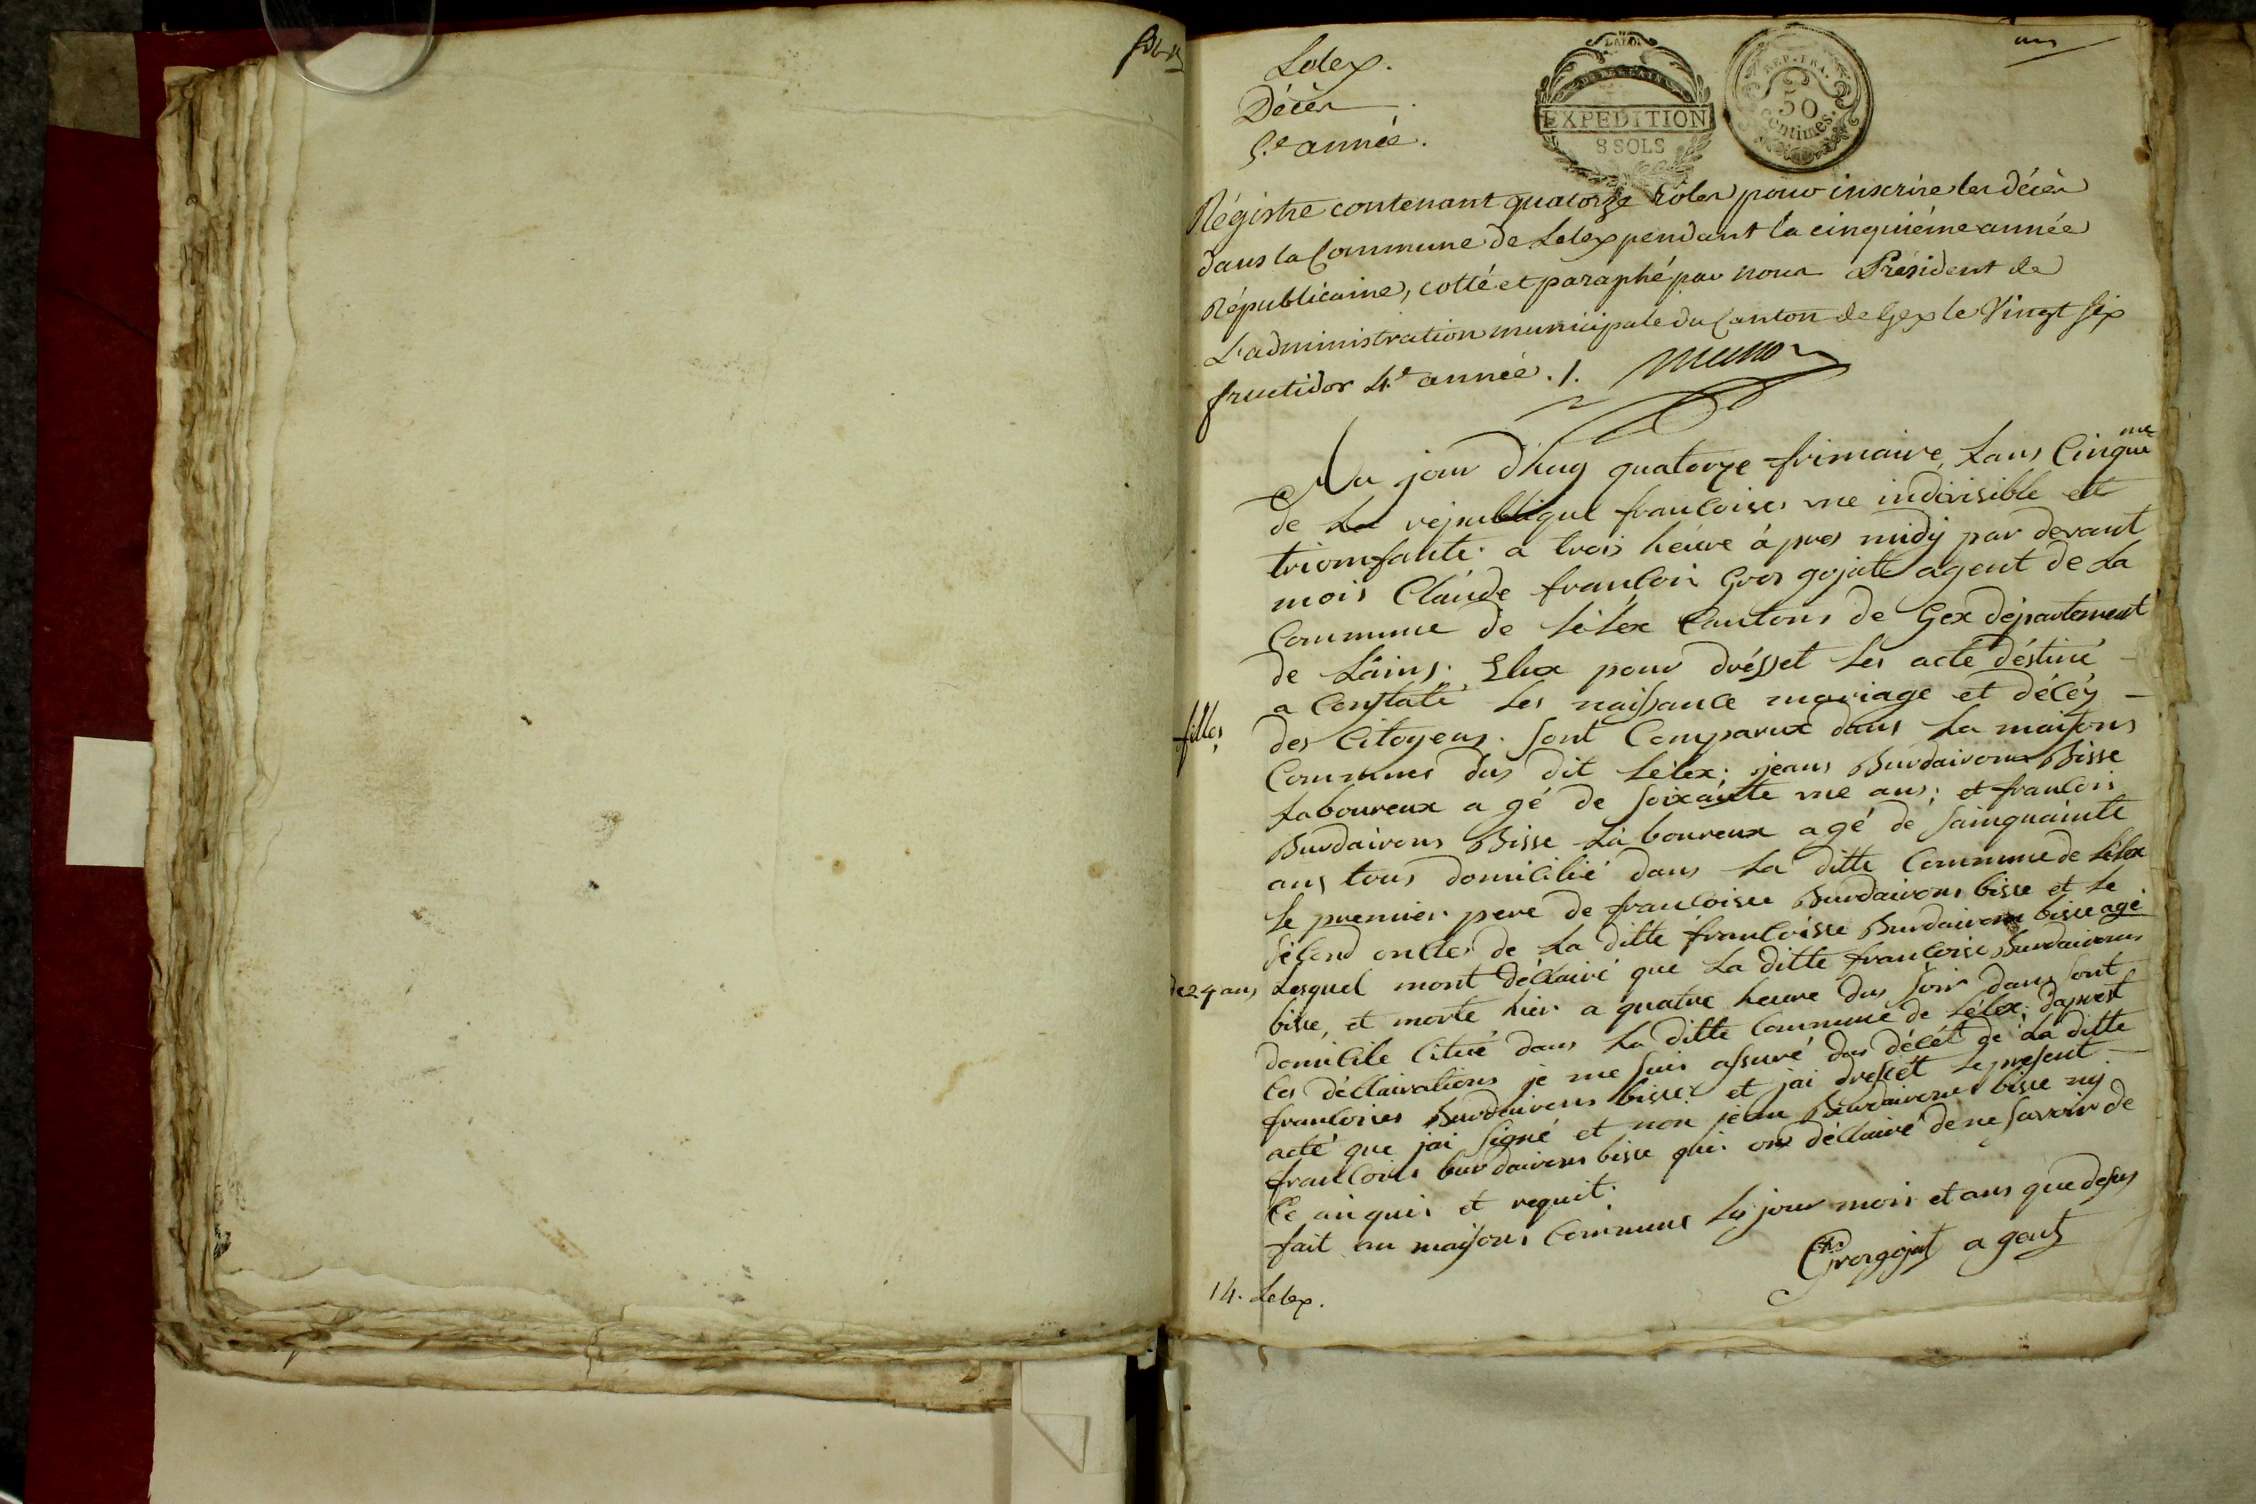 Lelex.
Décès
5.e année.
LA LOI
EXPEDITION
8 SOLS
REP. FRA.
50
centimes.
un
Régistre contenant quatorze rôles pour inscrire les décès
dans la Commune de Lelex pendant la cinquième année
Républicaine, cotté et paraphé par nous Président de
L'administration municipale du Canton de Gex le Vingt six
fructidor 4.e année. /.
Au jour dhuy quatorze frimaire, Lans Cinquieme
de La république francoises une indivisible et
triomfante. a trois héure âpres midÿ par devant
mois Claude francois Gros gojat agent de La
Commune de Lélex Cantons de Gex département
de Lains. Elux pour drésset Les acte déstiné
a Constaté Les naissance mariage et décéy
filles
des Citoyens. sont Comparux dans La maisons
Communes dus dit Lélex; jeans Burdairons Bisse
Laboureux a gé de soixante une ans; et francois
Burdairons Bisse Laboureux agé de sainquainte
ans tous domicilié dans La ditte Commune de Lélex
Le premier. pere de francoise Burdairons bisse et Le
sécond oncles de La ditte francoisse Burdairons bisse agé
de 24 ans Lesquel mont déclairé que La ditte francoise Burdairons
bisse, et morte hier a quatre heure dus soir dans sont
domicile Citué dans La ditte Commune de Lélex; daprest
Ces déclairations je me suis assuré dus décét de La ditte
francoises Burdairons bisse et jai dressét Le present
acté que jai signé et non jean Burdairons bisse ny
francois burdairons bisse qui on déclairé de ne savoir de
Ce anquis et requit.
fait an maisons Commune Les jour mois et ans que desus
Grosgojat agent
14. Lelex.